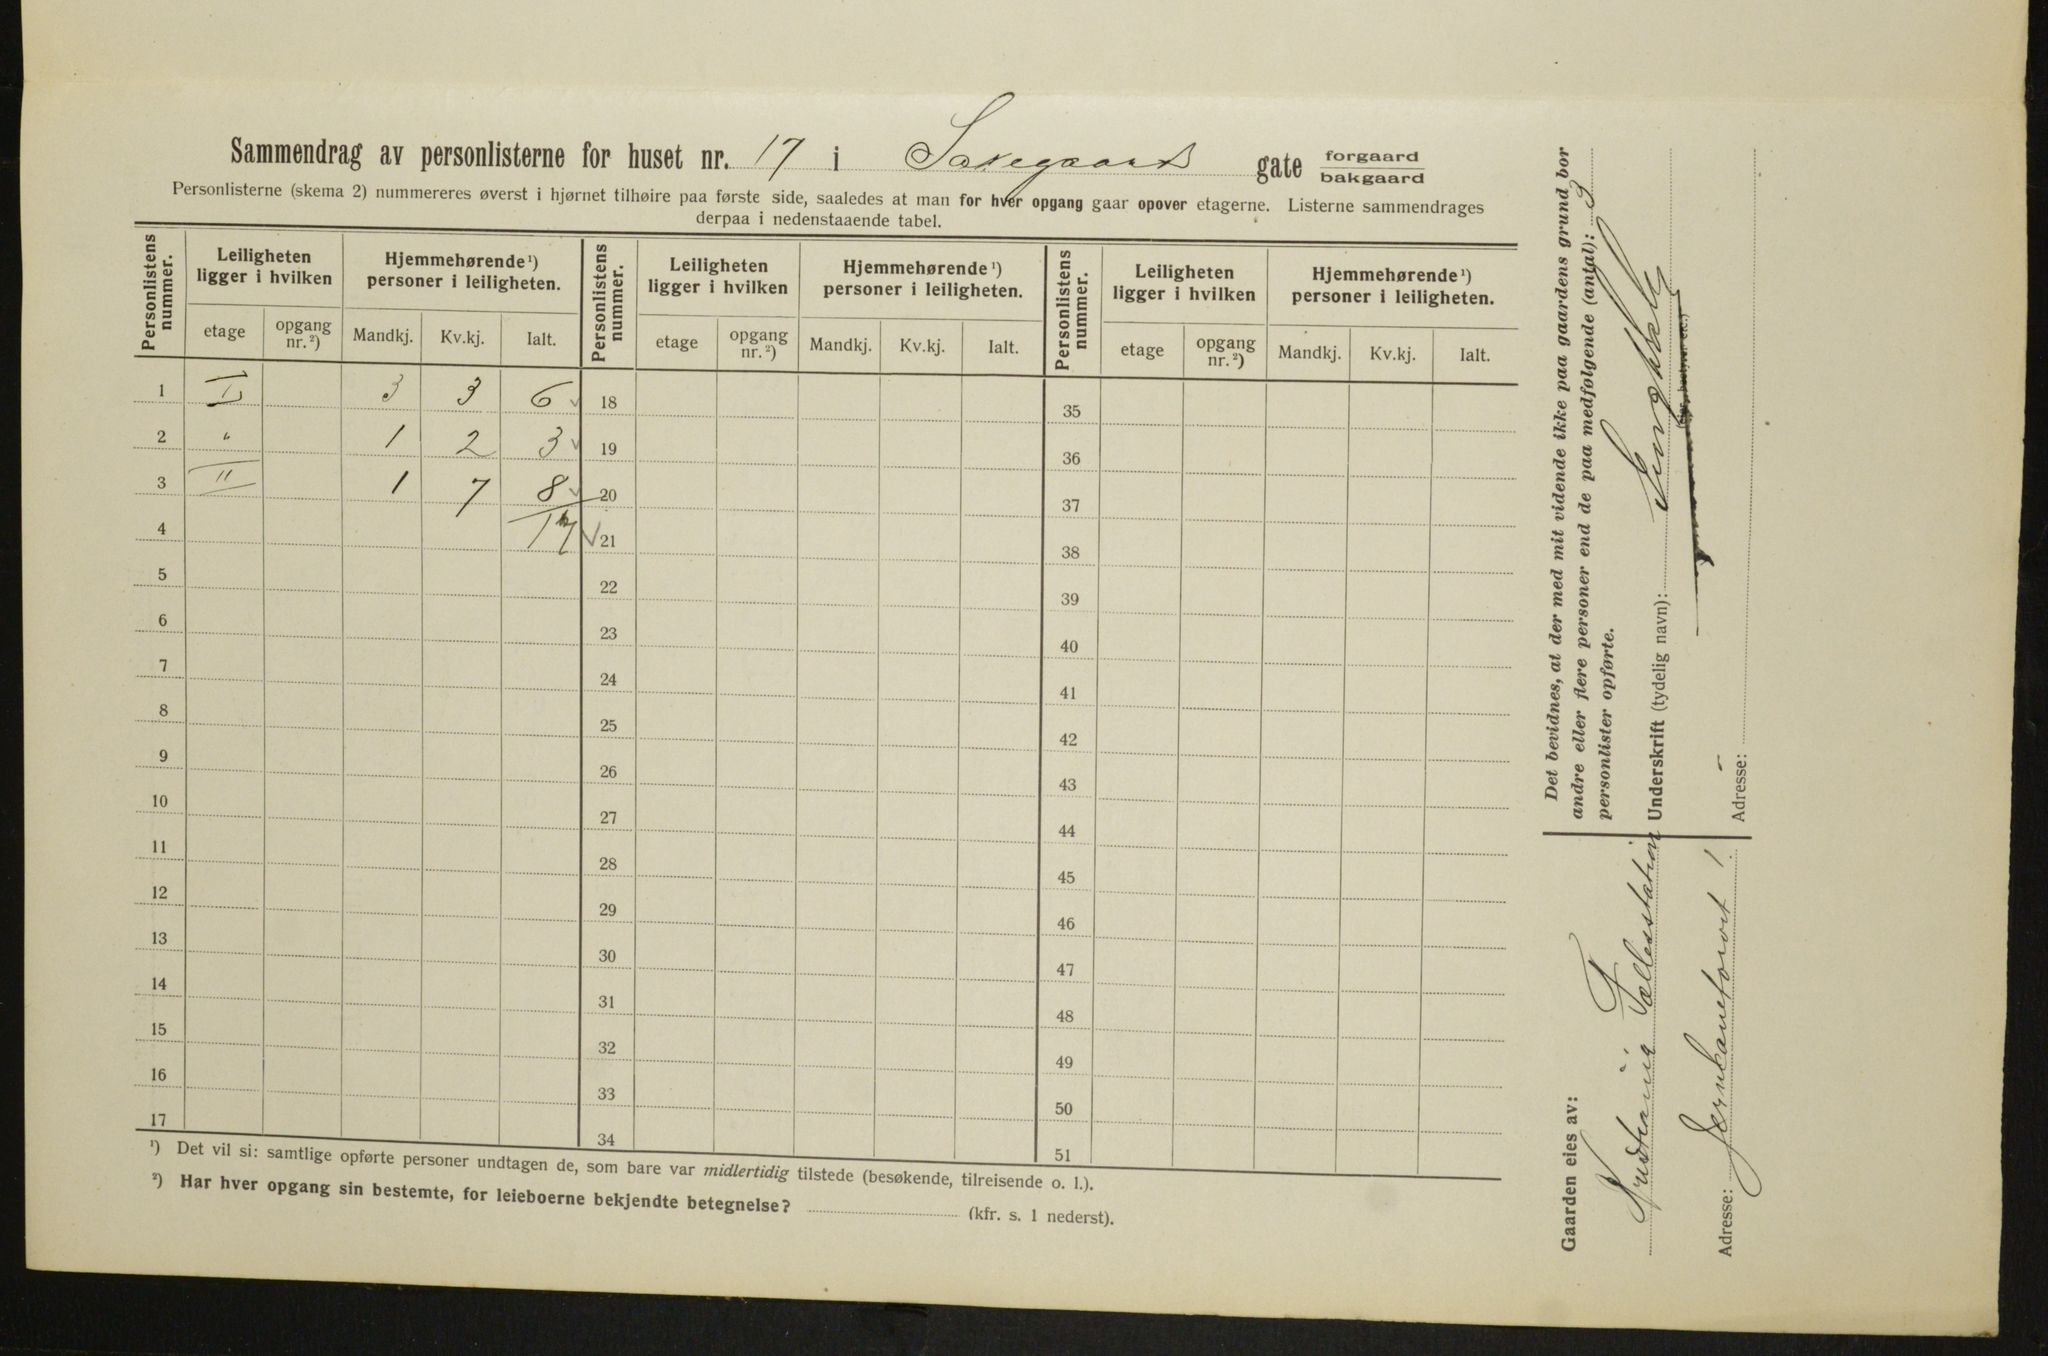 Sammendrag av personlisterne for huset nr. 17 i Saxegaards gate forgaard bakgaard
Personlisterne (skema 2) nummereres øverst i hjørnet tilhøire paa første side, saaledes at man for hver opgang gaar opover etagerne. Listerne sammendrages
derpaa i nedenstaaende tabel.
Personlistens nummer. Leiligheten ligger i hvilken Hjemmehørende ¹) personer i leiligheten. Personlistens nummer. Leiligheten ligger i hvilken Hjemmehørende ¹) personer i leiligheten. Personlistens nummer. Leiligheten ligger i hvilken Hjemmehørende ¹) personer i leiligheten.
etage opgang nr. ²) Mandkj. Kv.kj. Ialt. etage opgang nr. ²) Mandkj. Kv.kj. Ialt. etage opgang nr. ²) Mandkj. Kv.kj. Ialt.
1 I 3 3 6 18 35
2 " 1 2 3 19 36
3 II 1 7 8 20 37
4 17 21 38
5 22 39
6 23 40
7 24 41
8 25 42
9 26 43
10 27 44
11 28 45
12 29 46
13 30 47
14 31 48
15 32 49
16 33 50
17 34 51
¹) Det vil si: samtlige opførte personer undtagen de, som bare var midlertidig tilstede (besøkende, tilreisende o. l.).
²) Har hver opgang sin bestemte, for leieboerne bekjendte betegnelse? (kfr. s. 1 nederst).
Det bevidnes, at der med mit vidende ikke paa gaardens grund bor
andre eller flere personer end de paa medfølgende (antal): 3
personlister opførte.
Underskrift (tydelig navn):
Adresse:
Gaarden eies av:
Kristiania Fællesstation
Adresse: Jernbanetorvet 1